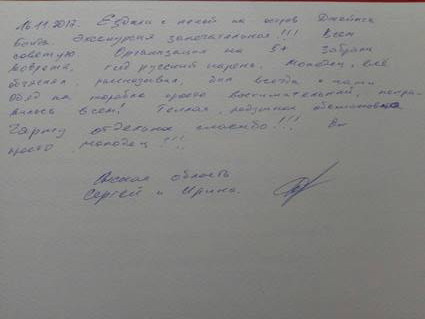 16.11.2017. Ездили с пемой на остров Джеймса
Бонда. Экскурсия замечательная!!! Всем
советую. Организация на 5+ Забрали
вовремя, гид русский парень. Молодец, всё
объяснял, рассказывал, был всегда с нами.
Обед на корабле просто восхитительный, понра-
вилось всем! Теплая, радушная обстановка.
отдельное спасибо!!! Вы
просто молодец!!!
Омская область
Сергей и Ирина.